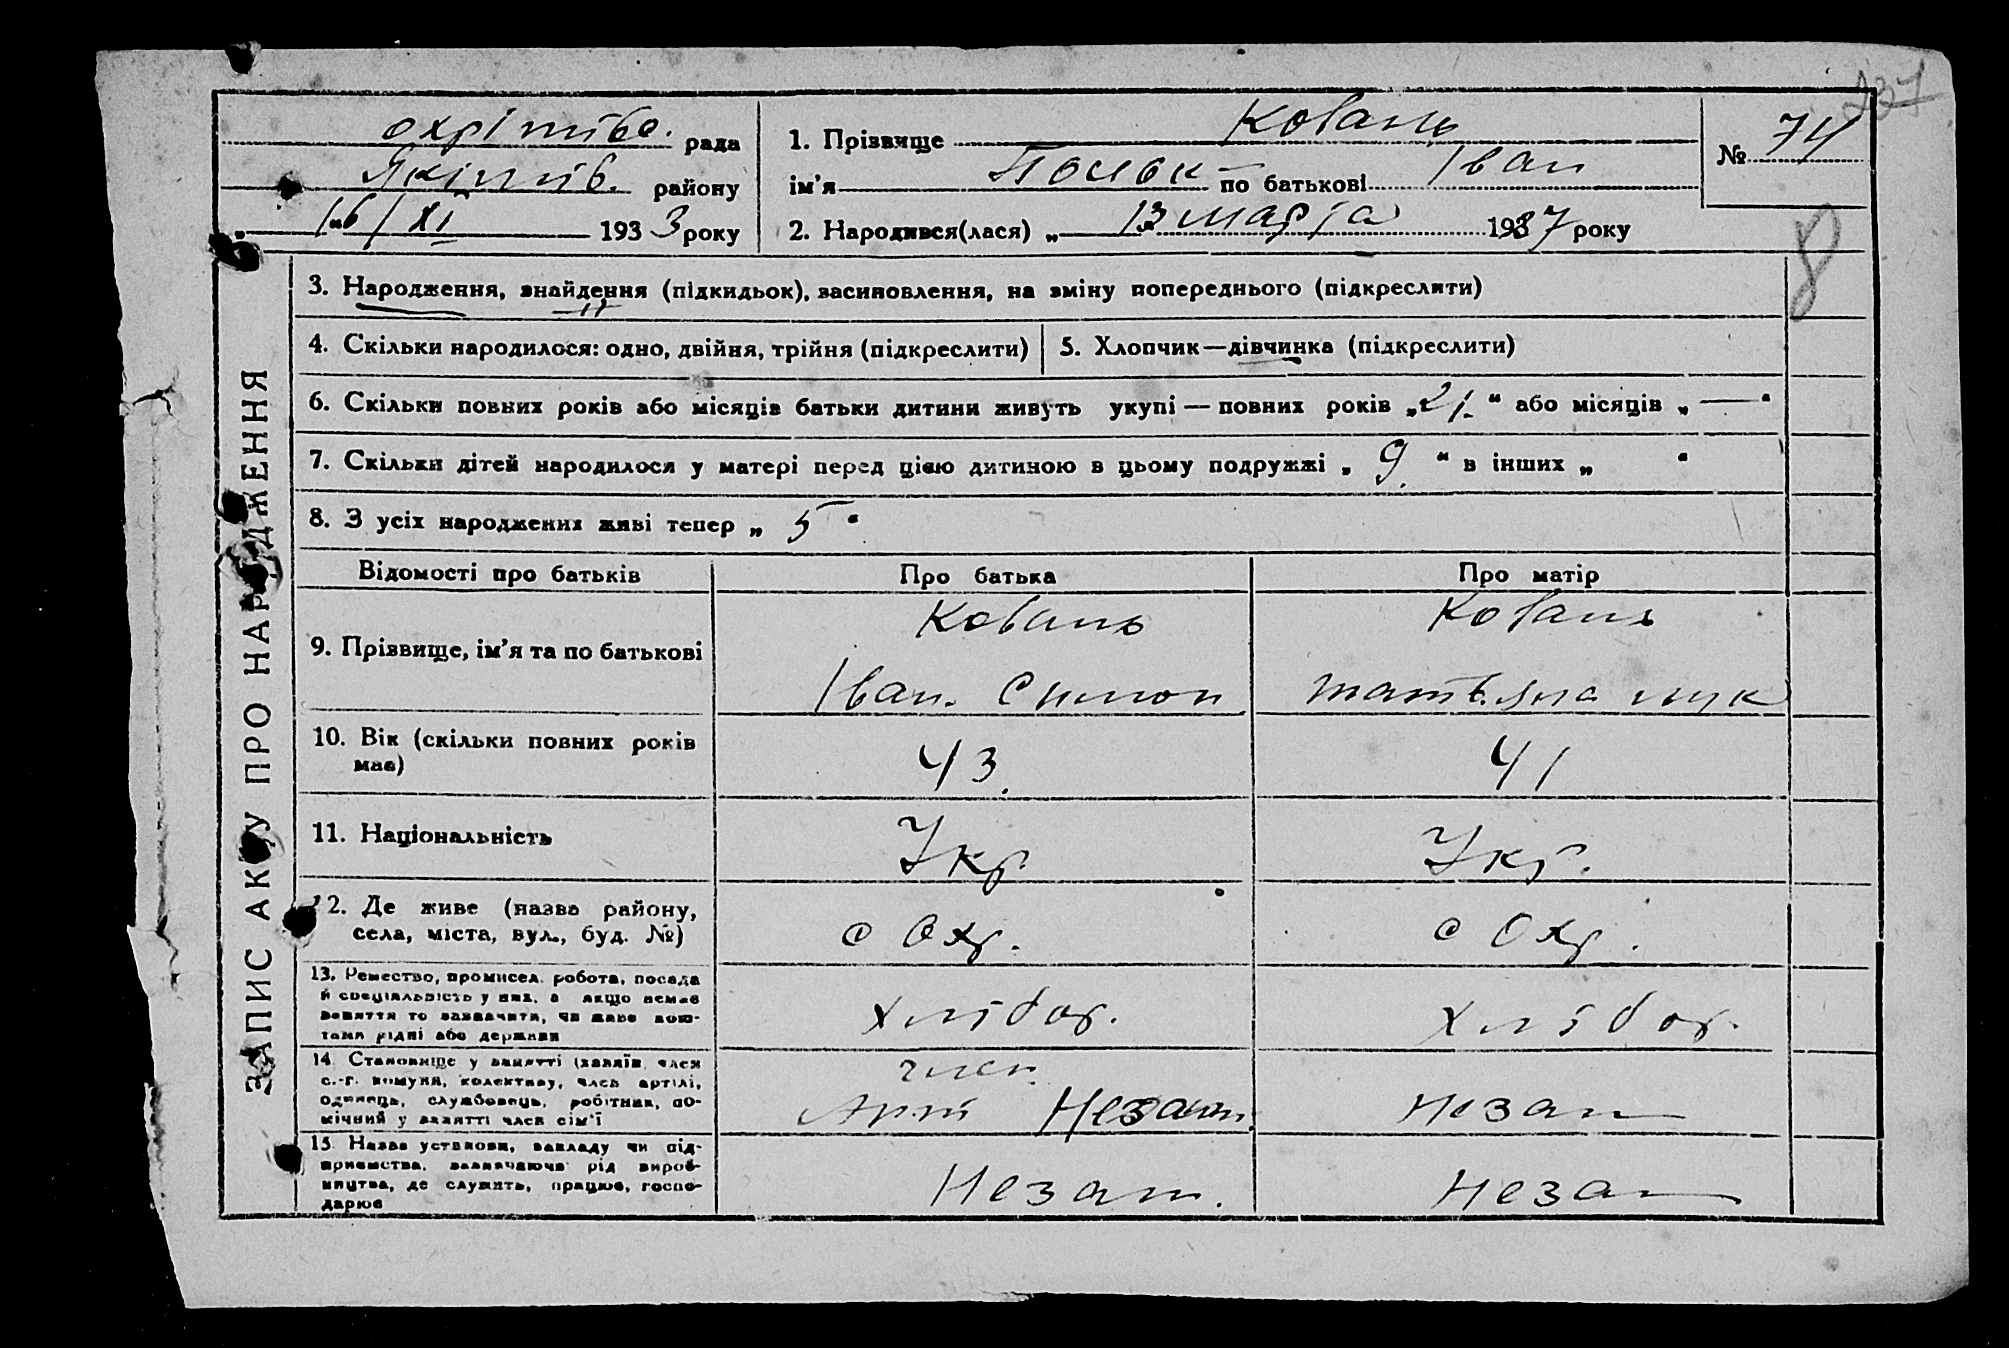 237
охрімів. рада
Якимів. району
„16/XI 1933 року
1. Прізвище Коваль
ім'я по батькові Іван
№ 74
2. Народився(лася) „13 марта 1937 року
8
ЗАПИС АКТУ ПРО НАРОДЖЕННЯ
3. Народження, знайдення (підкидьок), засиновлення, на зміну попереднього (підкреслити)
4. Скільки народилося: одно, двійня, трійня (підкреслити)
5. Хлопчик—дівчинка (підкреслити)
6. Скільки повних років або місяців батьки дитини живуть укупі — повних років „21." або місяців „—"
7. Скільки дітей народилося у матері перед цією дитиною в цьому подружжі „9." в інших „ "
8. З усіх народжених живі тепер „5"
Відомості про батьків Про батька Про матір
9. Прізвище, ім'я та по батькові
Коваль Коваль
Іван. Симон
10. Вік (скільки повних років має)
43. 41
11. Національність
Укр. Укр.
12. Де живе (назва району, села, міста, вул., буд. №)
с Охр. с Охр.
13. Ремество, промисел, робота, посада
й спеціальність у них, а якщо немає
заняття то зазначити, чи живе кош-
тами рідні або держави
Хлібор. Хлібор.
14. Становище у занятті (хазяїн, член
с.-г. комуни, колективу, член артілі,
одинець, службовець, робітник, по-
мічний у занятті член сім'ї
член
15. Назва установи, закладу чи під-
приємства, зазначаючи рід вироб-
ництва, де служить, працює, госпо-
дарює